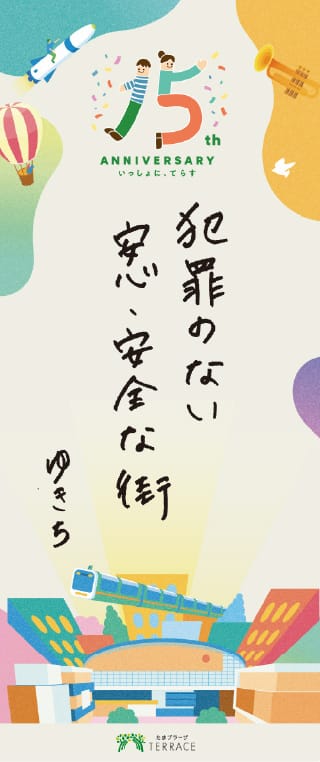 15th
ANNIVERSARY
いっしょに、てらす
犯罪のない
安心、安全な街
ゆきち
たまプラーザ
TERRACE